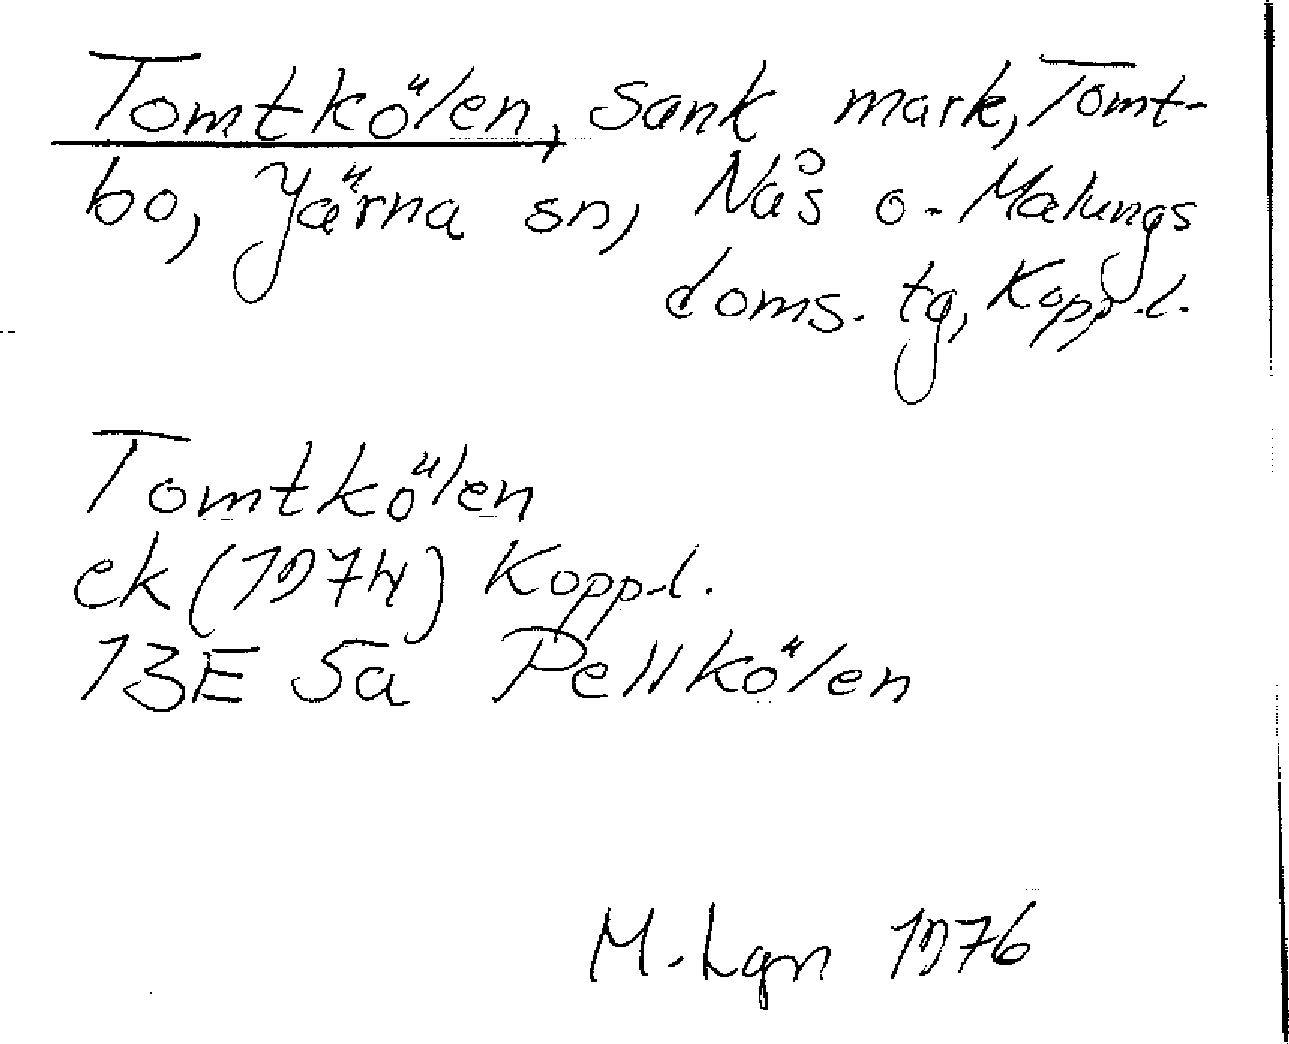 Tomtkölen, sank mark, Tomt-
bo, Järna sn, Nås o. Malungs
doms. tg, Kopp.l.
Tomtkölen
ek (1974) Kopp.l.
13E 5a Pellkölen
M. Lgn 1976